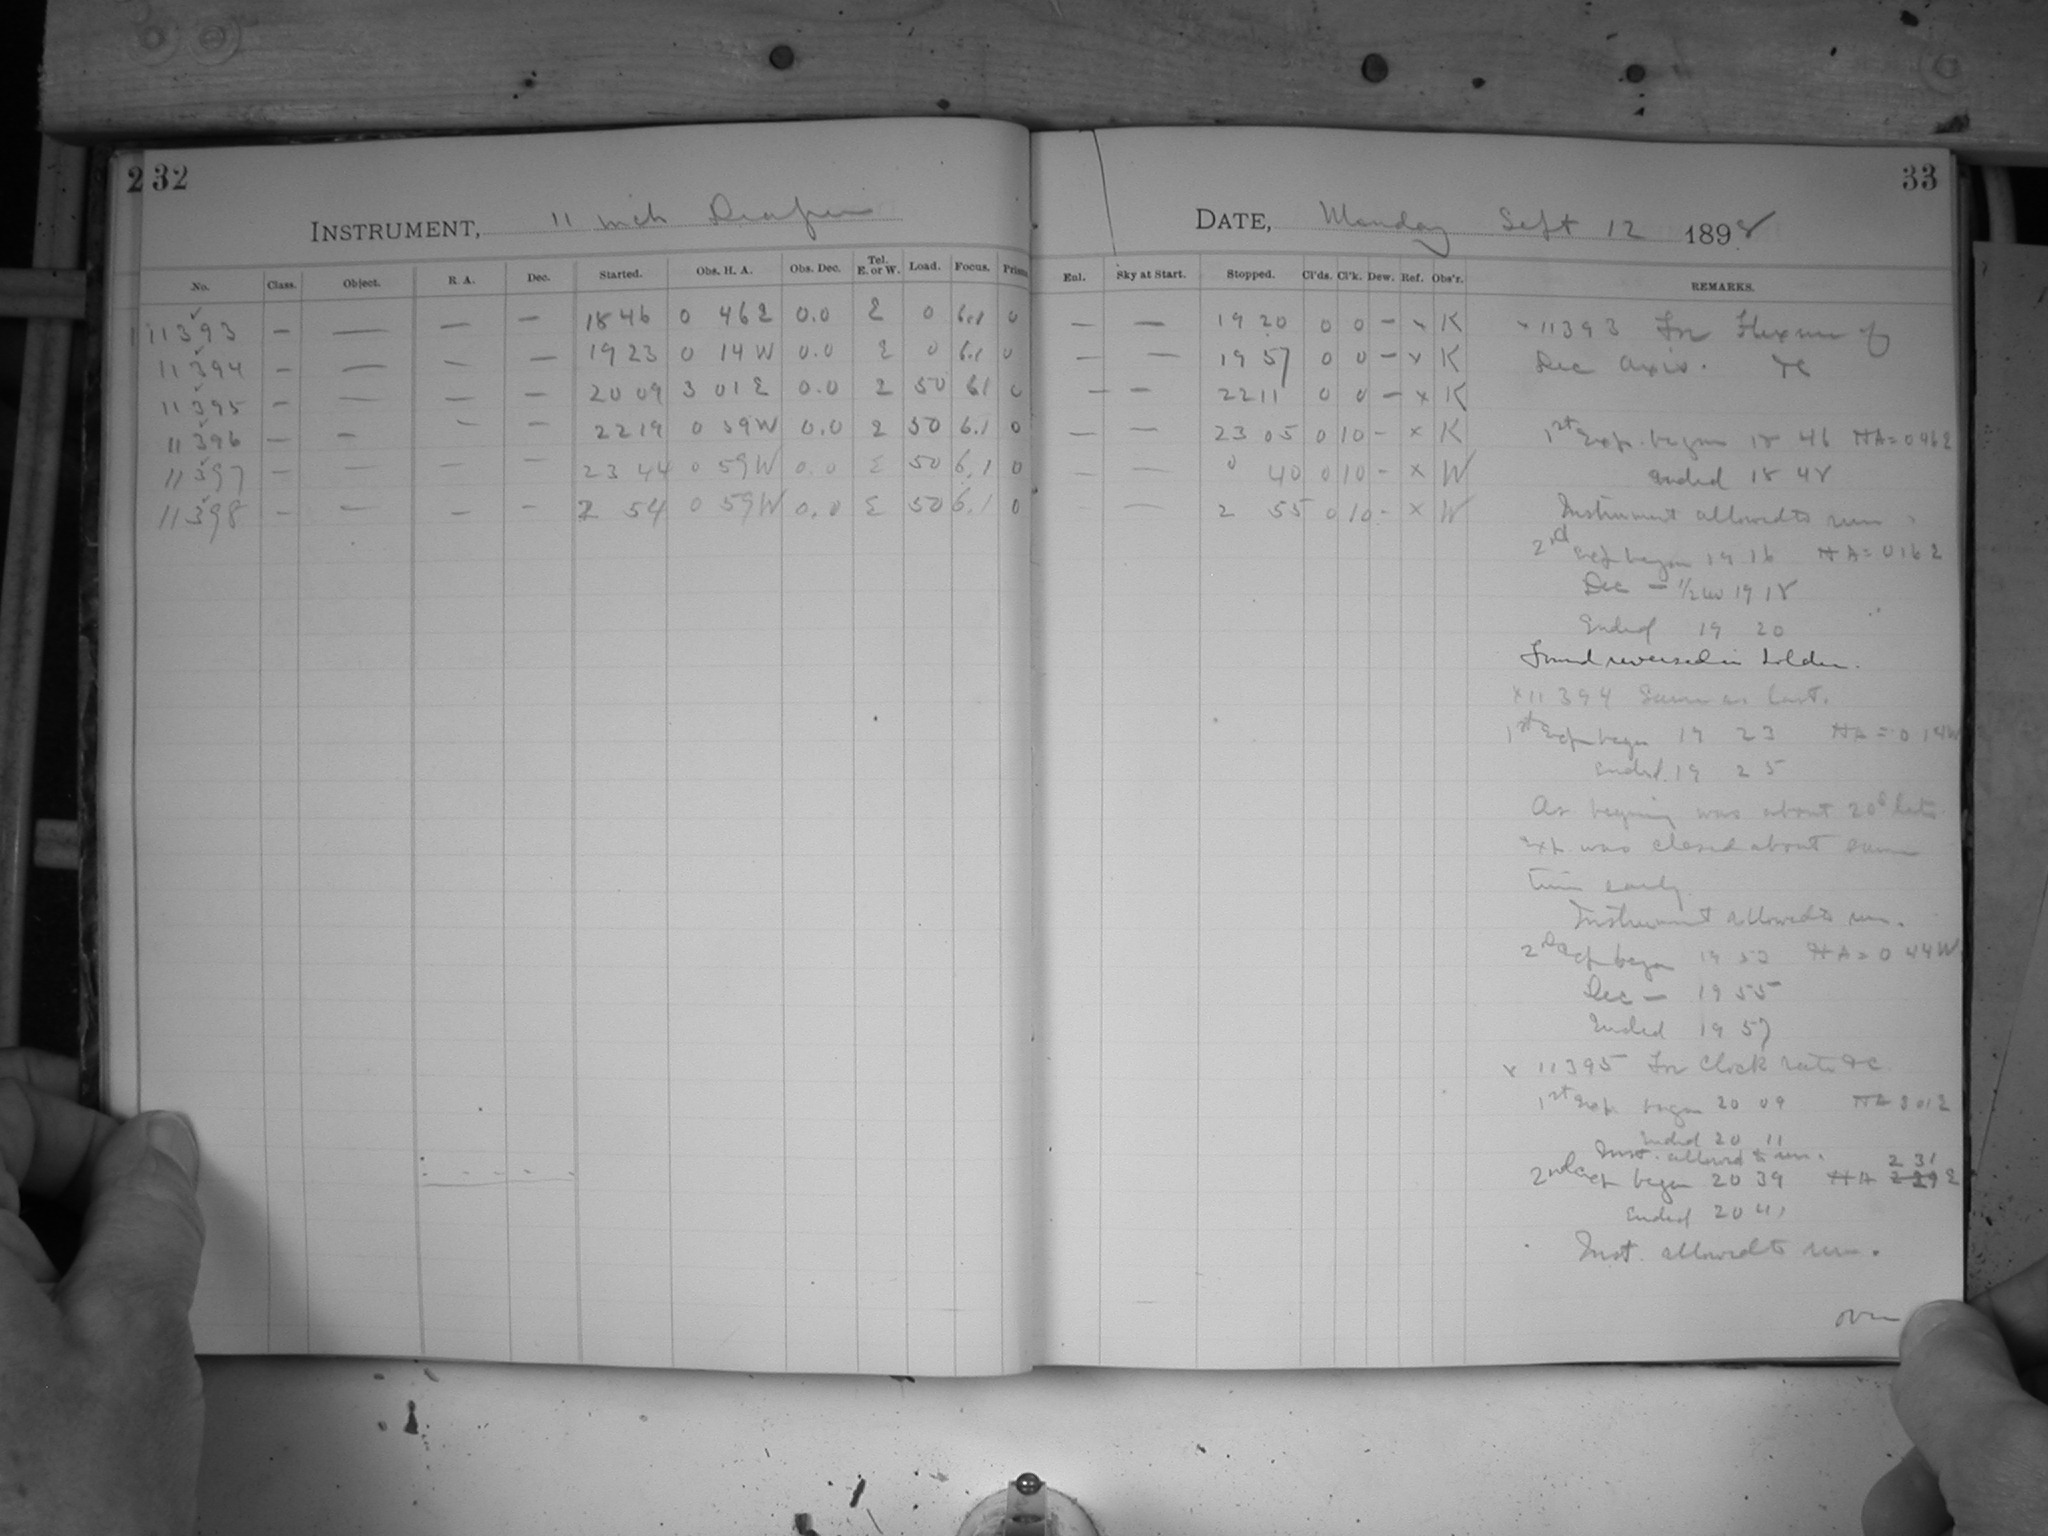 232
INSTRUMENT, 11 inch Draper
No. Class. Object. R. A. Dec. Started. Obs. H. A. Obs. Dec. Tel. E. or W. Load. Focus. Prism
11393 — — — — 18 46 0 46 E 0.0 E 0 6.1 0
11394 — — — — 19 23 0 14 W 0.0 E 0 6.1 0
11395 — — — — 20 09 3 01 E 0.0 E 50 6.1 0
11396 — — — — 22 19 0 59 W 0.0 E 50 6.1 0
11397 — — — — 23 44 0 59 W 0.0 E 50 6.1 0
11398 — — — — 2 54 0 59 W 0.0 E 50 6.1 0
33
DATE, Monday Sept 12 1898
Enl. Sky at Start. Stopped. Cl'ds. Cl'k. Dew. Ref. Obs'r. REMARKS.
— — 19 20 0 0 — x K
— — 19 57 0 0 — x K
— — 22 11 0 0 — x K
— — 23 05 0 10 - x K
— — 0 40 0 10 - x W
— — 2 55 0 10 - x W
x 11393 For Flexure of
Dec axis. &c
1st Exp. began 18 46 HA = 0 46 E
Ended 18 48
Instrument allowed to run.
2nd Exp began 19 16 HA = 0 16 E
Dec — 19 18
Ended 19 20
Found reversed in holder.
x 11394 Same as last.
1st Exp began 19 23 HA = 0 14 W
Ended 19 25
As begining was about 20s late
Exp. was closed about same
time early.
Instrument allowed to run.
2nd Exp began 19 53 HA = 0 44 W
Dec — 19 55
Ended 19 57
x 11395 For Clock rate &c
1st Exp. began 20 09 HA 3 01 E
Ended 20 11
Inst. allowed to run.
2nd Exp began 20 39 HA 2 31 E
Ended 20 41
Inst. allowed to run.
over